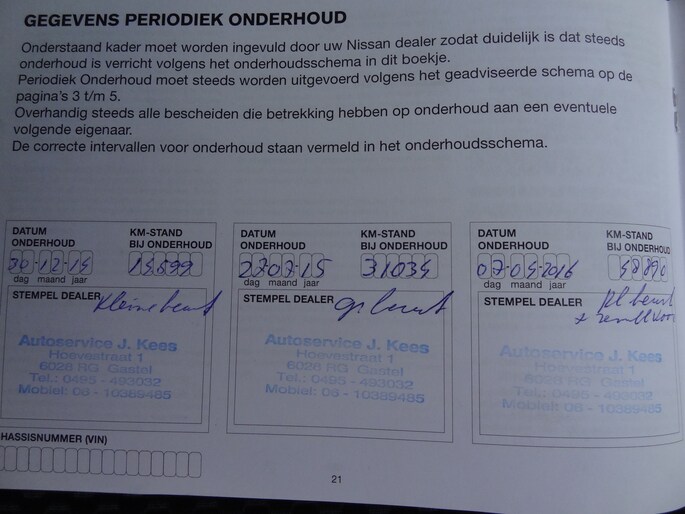 GEGEVENS PERIODIEK ONDERHOUD
Onderstaand kader moet worden ingevuld door uw Nissan dealer zodat duidelijk is dat steeds
onderhoud is verricht volgens het onderhoudsschema in dit boekje.
Periodiek Onderhoud moet steeds worden uitgevoerd volgens het geadviseerde schema op de
pagina's 3 t/m 5.
Overhandig steeds alle bescheiden die betrekking hebben op onderhoud aan een eventuele
volgende eigenaar.
De correcte intervallen voor onderhoud staan vermeld in het onderhoudsschema.
DATUM
ONDERHOUD
KM-STAND
BIJ ONDERHOUD
30-12-14
dag maand jaar
STEMPEL DEALER
kleine beurt
Autoservice J. Kees
Hoevestraat 1
6028 RG Gastel
Tel.: 0495 - 493032
Mobiel: 06 - 10389485
DATUM
ONDERHOUD
KM-STAND
BIJ ONDERHOUD
22-07-15
31034
dag maand jaar
STEMPEL DEALER
gr beurt
Autoservice J. Kees
Hoevestraat 1
6028 RG Gastel
Tel.: 0495 - 493032
Mobiel: 06 - 10389485
DATUM
ONDERHOUD
KM-STAND
BIJ ONDERHOUD
dag maand jaar
STEMPEL DEALER
kl beurt
Autoservice J. Kees
Hoevestraat 1
6028 RG Gastel
Tel.: 0495 - 493032
Mobiel: 06 - 10389485
HASSISNUMMER (VIN)
21